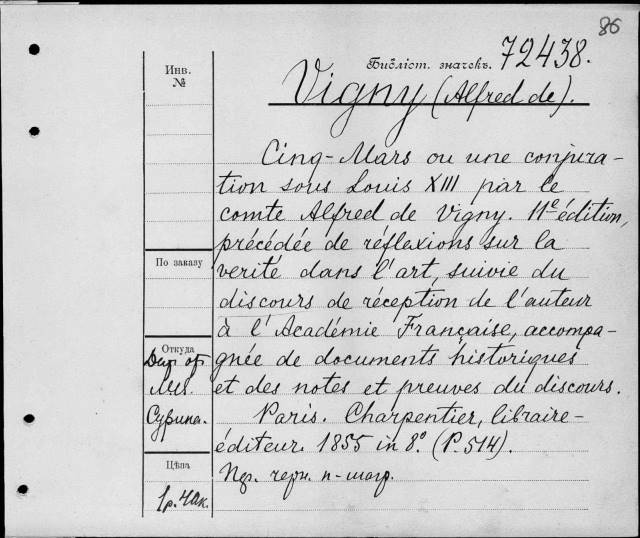 86
Библіот. значекъ. 72438.
Инв.
№
Vigny (Alfred de).
Cinq-Mars ou une conjura-
tion sous Louis XIII par le
comte Alfred de Vigny. 11e édition,
précédée de réflexions sur la
verité dans l'art, suivie du
discours de réception de l'auteur
à l'Académie Française, accompa-
gnée de documents historiques
et des notes et preuves du discours.
Paris. Charpentier, libraire-
éditeur. 1855 in 8º. (P. 514).
По заказу
Откуда
Цѣна
1р. 40к.